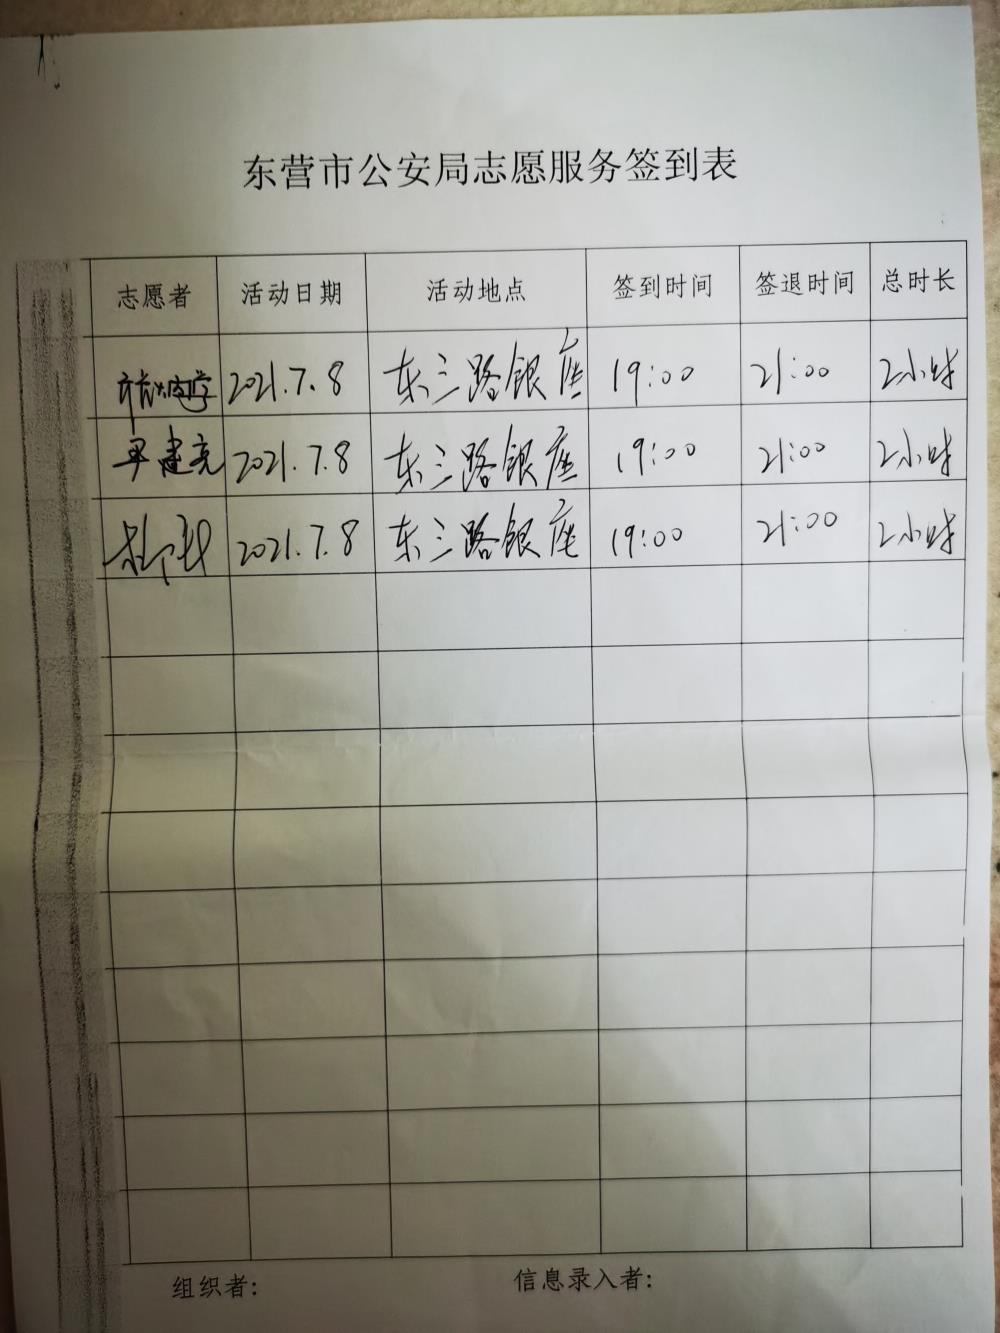 东营市公安局志愿服务签到表
志愿者 活动日期 活动地点 签到时间 签退时间 总时长
2021.7.8 东三路银座 19:00 21:00 2小时
平建亮 2021.7.8 东三路银座 19:00 21:00 2小时
2021.7.8 东三路银座 19:00 21:00 2小时
组织者: 信息录入者: